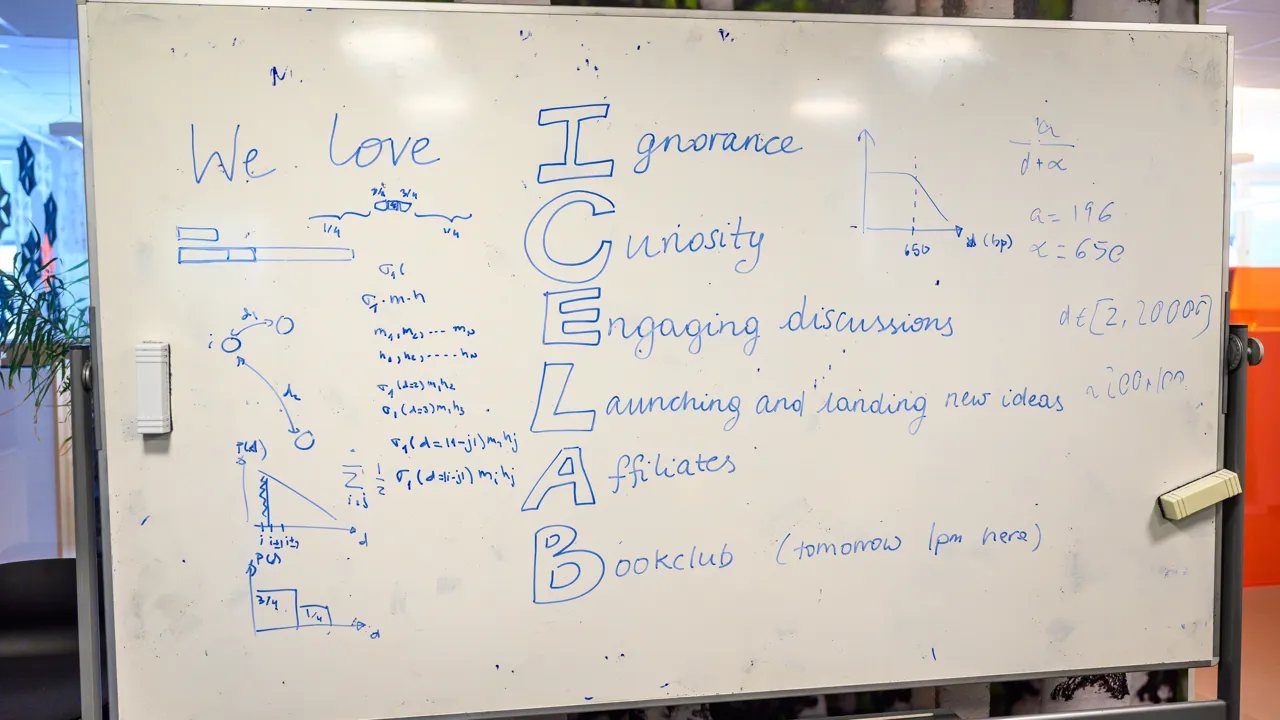 We love
Ignorance
Curiosity
Engaging discussions
Launching and landing new ideas
Affiliates
Bookclub (tomorrow 1pm here)
3/4
1/4
1/4
σ₁(
σ₁·m·h
m₁, m₂, ---- mₙ
h₁, h₂, ----- hₙ
σ₁(d=2)m₁h₂
σ₁(d=3)m₁h₃
σ₁(d=|1-j|)m₁hj
∑ i,j 1/2 σ₁(d=|i-j|)mᵢhj
i
d₁
d₂
P(d)
i i+1 i+2
d
P(d)
3/4
1/4
d
650
(bp)
a
d+α
a=196
α=650
d∈[2, 20000]